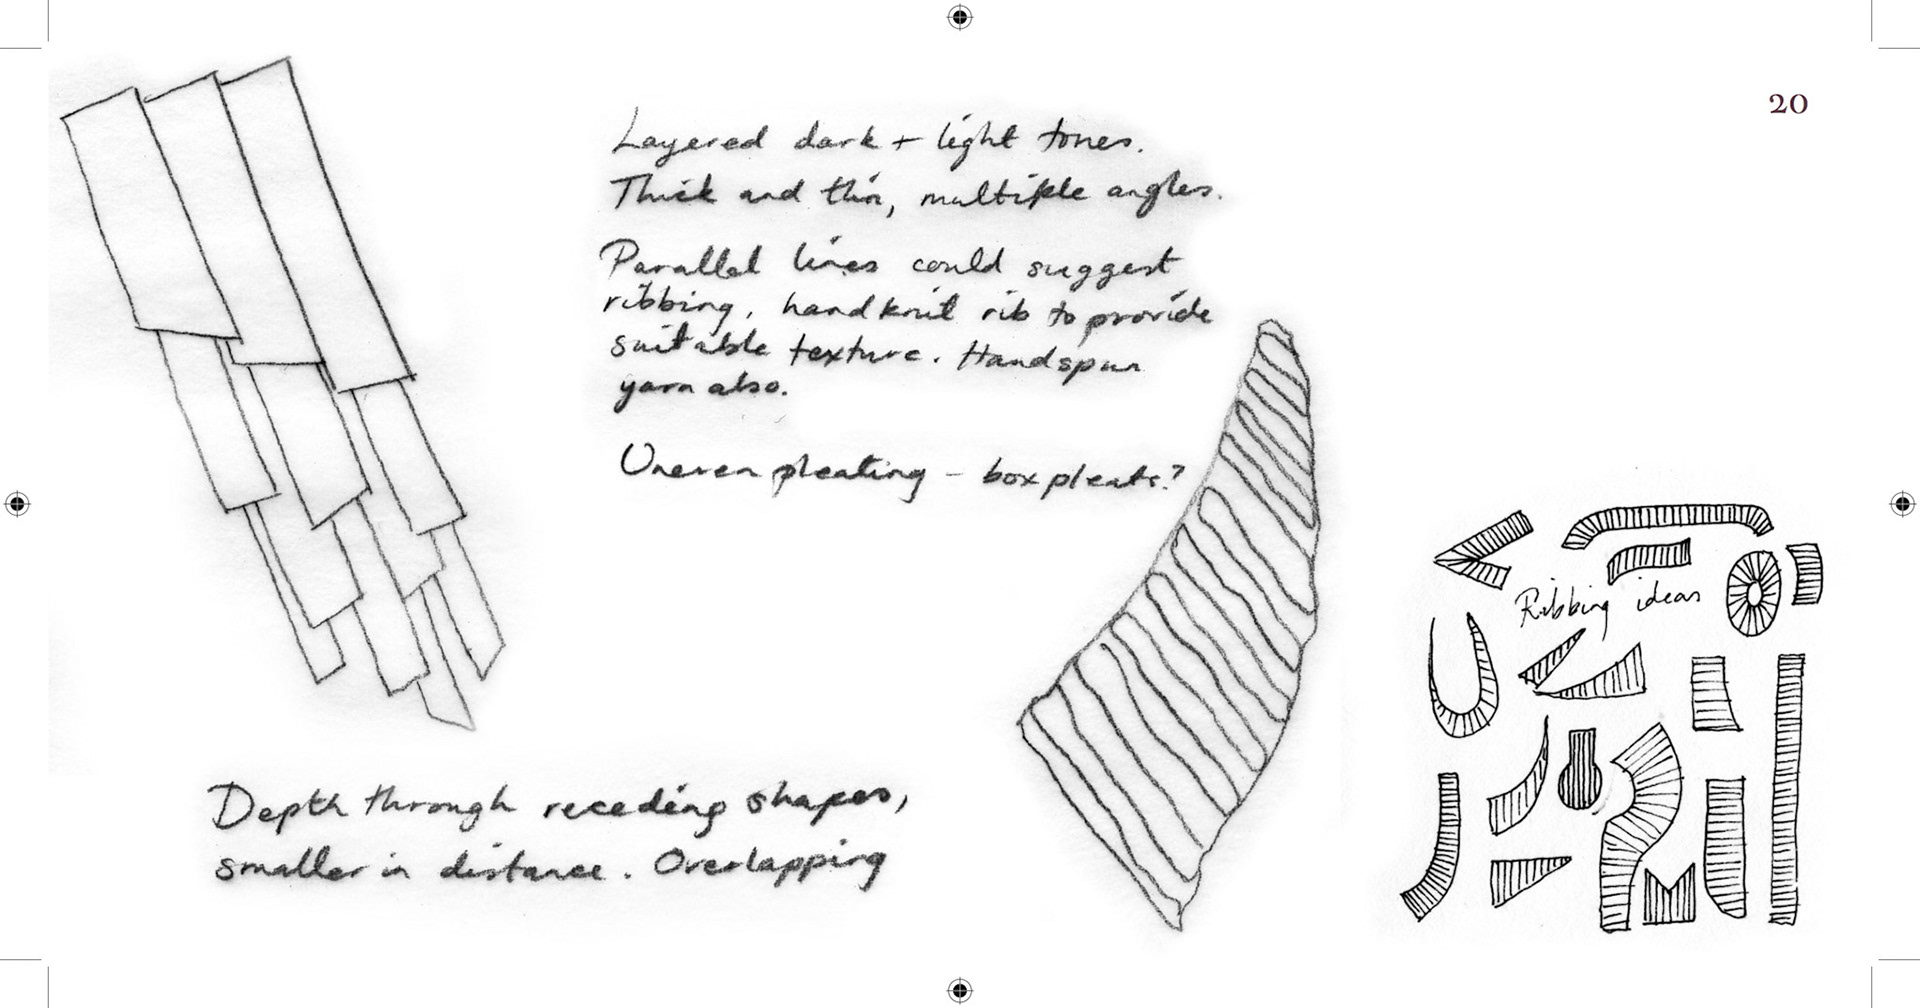 20
Layered dark + light tones.
Thick and thin, multiple angles.
Parallel lines could suggest
ribbing, handknit rib to provide
suitable texture. Handspun
yarn also.
Uneven pleating – box pleats?
Ribbing ideas
Depth through receding shapes,
smaller in distance. Overlapping